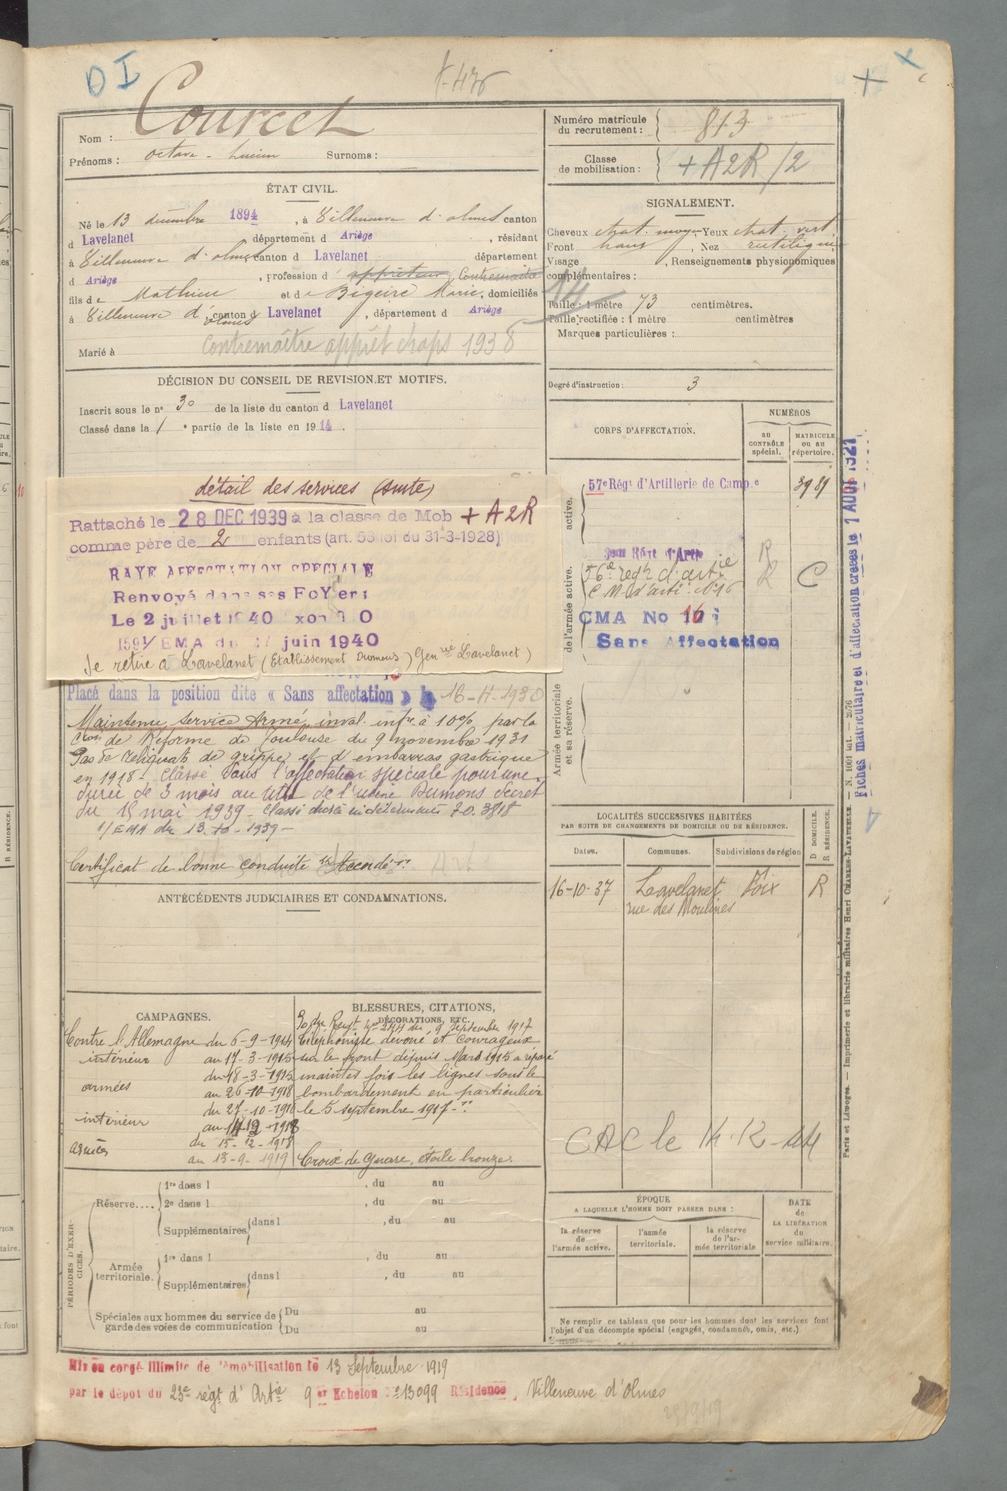 D I
Courcet
Nom :
Prénoms : Octave - Lucien Surnoms :
Numéro matricule du recrutement : 813
Classe de mobilisation : + A2R/2
ÉTAT CIVIL.
Né le 13 décembre 1894, à Villeneuve d'olmes canton
d Lavelanet département d Ariège, résidant
à Villeneuve d'olmes canton d Lavelanet département
d Ariège, profession d apprêteur Contremaître
fils de Mathieu et de Bigeire Marie, domiciliés
à Villeneuve d'olmes canton d Lavelanet, département d Ariège
Marié à
Contremaître apprêt draps 1938
SIGNALEMENT.
Cheveux chat. moy. Yeux chat. vert
Front haut, Nez rectiligne
Visage , Renseignements physionomiques
complémentaires :
14
Taille : 1 mètre 73 centimètres.
Taille rectifiée : 1 mètre centimètres
Marques particulières :
Degré d'instruction : 3
DÉCISION DU CONSEIL DE REVISION ET MOTIFS.
Inscrit sous le n° 30 de la liste du canton d Lavelanet
Classé dans la 1e partie de la liste en 1914.
détail des services (suite)
Rattaché le 28 DEC 1939 à la classe de Mob + A2R
comme père de 2 enfants (art. 58 loi du 31-3-1928)
RAYE AFFECTATION SPECIALE
Renvoyé dans ses FoYers
Le 2 juillet 1940
EMA du juin 1940
Se retire à Lavelanet (Etablissement Dumons) Gen rie Lavelanet)
Placé dans la position dite « Sans affectation » 16-4-1930
Maintenu service Armé, inval. infre à 10%, par la
Con de Réforme de Toulouse du 9 novembre 1931
Pas de reliquats de grippe et d'embarras gastrique
en 1918. Classé dans l'affectation spéciale pour une
durée de 3 mois au titre de l'usine Dumons Decret
du 15 mai 1939 - Classé durée indéterminée D.O. 3818
1/EMA du 13.10-1939 -
Certificat de bonne conduite "Accordé".
CORPS D'AFFECTATION.
NUMÉROS
AU CONTRÔLE spécial.
MATRICULE ou au répertoire.
active.
57e Régt d'Artillerie de Campe 3981
de l'armée active.
56e regt d'artie R C
C.M. d'arti. N°16
CMA No 16
Sans Affectation
Armée territoriale et sa réserve.
LOCALITÉS SUCCESSIVES HABITÉES
PAR SUITE DE CHANGEMENTS DE DOMICILE OU DE RÉSIDENCE.
Dates. Communes. Subdivisions de région D DOMICILE. R RÉSIDENCE.
16-10-37 Lavelanet Foix R
rue des Moulines
CAC le 14-12-44
ANTÉCÉDENTS JUDICIAIRES ET CONDAMNATIONS.
CAMPAGNES.
Contre l'Allemagne du 6-9-1914
intérieur au 17-3-1915
armées du 18-3-1915
au 26-10-1918
intérieur du 27-10-1918
au 14-12-1918
armées du 15-12-1918
au 13-9-1919
BLESSURES, CITATIONS, DÉCORATIONS, ETC.
Ordre Regt n° 244 du 9 septembre 1917
Téléphoniste dévoué et courageux
sur le front depuis Mars 1915 a réparé
maintes fois les lignes sous le
bombardement en particulier
le 5 septembre 1917.
Croix de Guerre, étoile bronze.
PÉRIODES D'EXERCICES.
Réserve....
1re dans l , du au
2e dans l , du au
Supplémentaires dans l , du au
Armée territoriale.
1re dans l , du au
Supplémentaires dans l , du au
Spéciales aux hommes du service de garde des voies de communication
Du au
Du au
ÉPOQUE
A LAQUELLE L'HOMME DOIT PASSER DANS :
la réserve de l'armée active.
l'armée territoriale.
la réserve de l'armée territoriale
DATE de LA LIBÉRATION du service militaire.
Ne remplir ce tableau que pour les hommes dont les services font
l'objet d'un décompte spécial (engagés, condamnés, omis, etc.)
Mis en congé illimité de démobilisation le 13 Septembre 1919
par le dépôt du 23e régt d'Artie 9er Echelon n° 13099 Résidence, Villeneuve d'Olmes
Fiches matriculaire et d'affectation créées le 1 AOUT 1921
Paris et Limoges. — Imprimerie et librairie militaires Henri CHARLES-LAVAUZELLE.